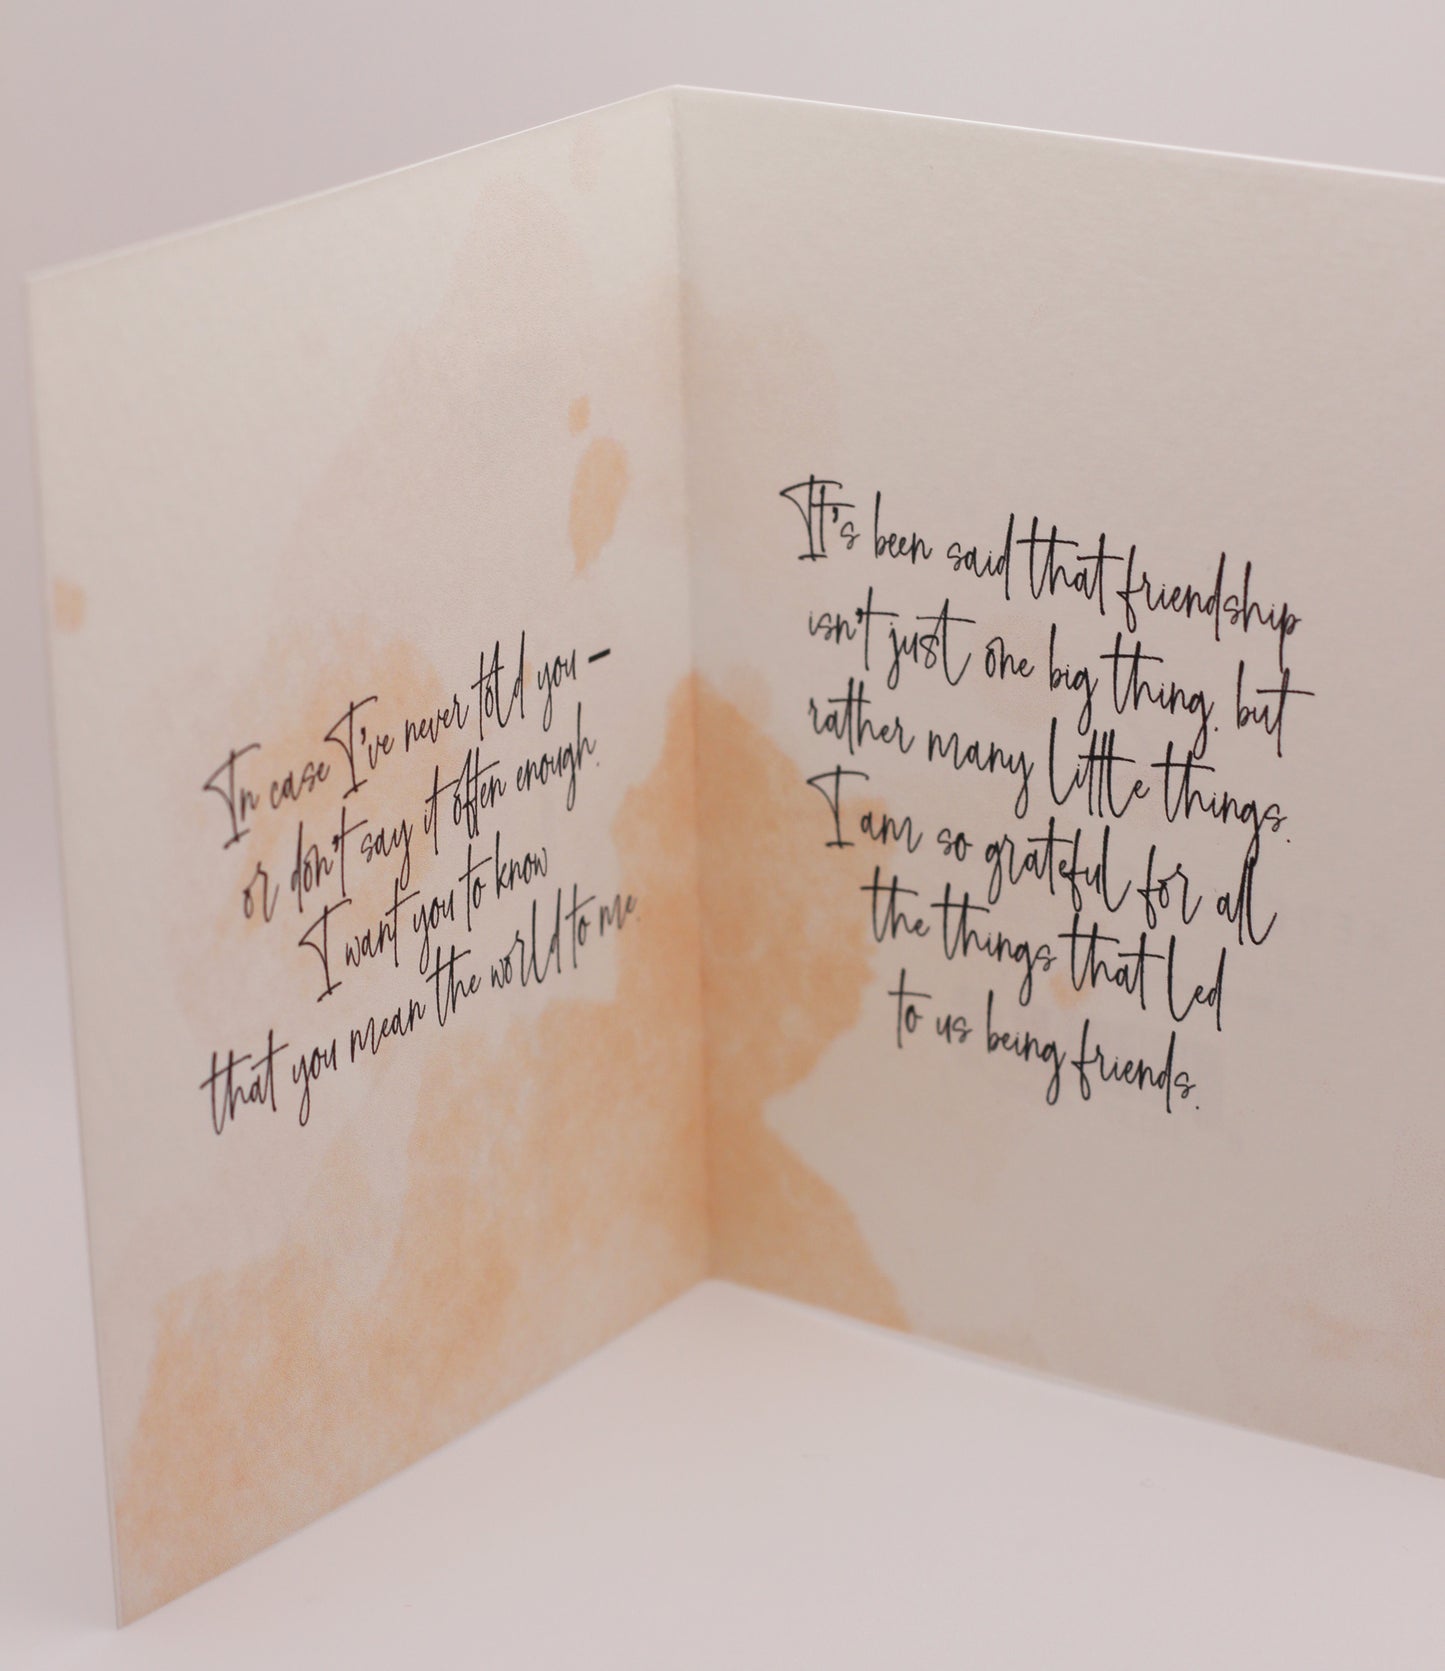 In case I've never told you –
or don't say it often enough.
I want you to know
that you mean the world to me.
It's been said that friendship
isn't just one big thing, but
rather many little things.
I am so grateful for all
the things that led
to us being friends.